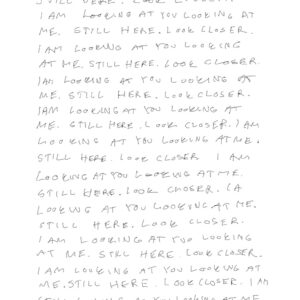 STILL HERE. LOOK CLOSER.
I AM LOOKING AT YOU LOOKING AT
ME. STILL HERE. LOOK CLOSER.
I AM LOOKING AT YOU LOOKING
AT ME. STILL HERE. LOOK CLOSER.
I AM LOOKING AT YOU LOOKING AT
ME. STILL HERE. LOOK CLOSER.
I AM LOOKING AT YOU LOOKING AT
ME. STILL HERE. LOOK CLOSER. I AM
LOOKING AT YOU LOOKING AT ME.
STILL HERE. LOOK CLOSER I AM
LOOKING AT YOU LOOKING AT ME.
STILL HERE. LOOK CLOSER. I A
LOOKING AT YOU LOOKING AT ME.
STILL HERE. LOOK CLOSER.
I AM LOOKING AT YOU LOOKING
AT ME. STILL HERE. LOOK CLOSER.
I AM LOOKING AT YOU LOOKING AT
ME. STILL HERE. LOOK CLOSER. I AM
LOOKING AT YOU LOOKING AT ME